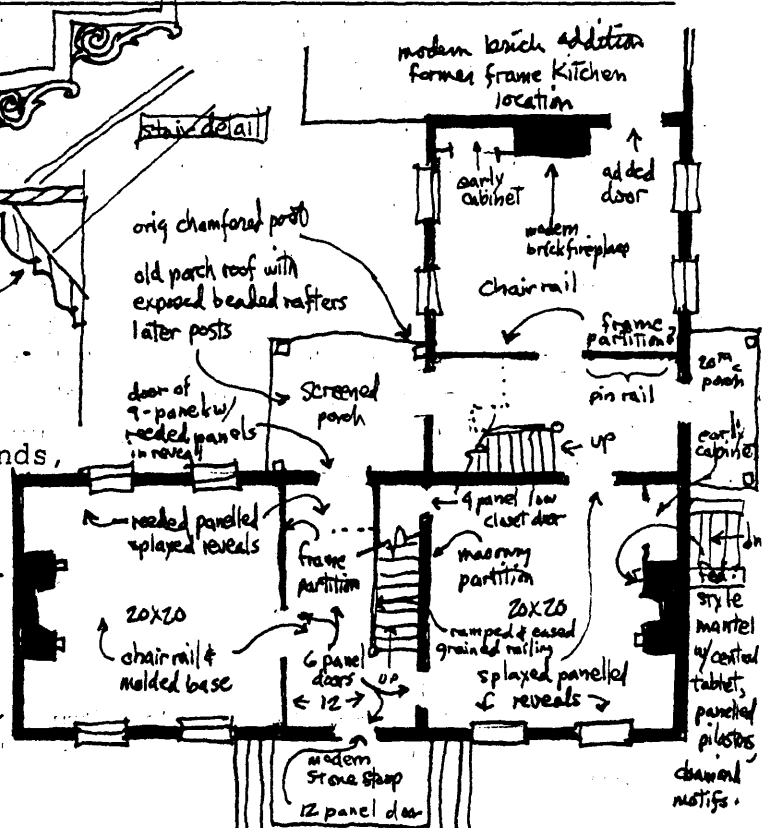 modern brick addition
former frame kitchen
location
stair detail
early
cabinet
added
door
modern
brick fireplace
orig chamfered post
old porch roof with
exposed beaded rafters
later posts
chair rail
frame
partition?
20th c
porch
pin rail
door of
9-panels w/
reeded panels
in reveal
screened
porch
up
early
cabinet
nds,
reeded panelled
splayed reveals
4 panel low
closet door
frame
partition
masonry
partition
dn
20x20
20x20
ramped & eased
grained railing
chair rail &
molded base
6 panel
doors
up
12
splayed panelled
reveals
fed.
style
mantel
w/ central
tablet,
panelled
pilasters,
diamond
motifs.
modern
stone stoop
12 panel door